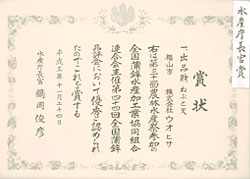 水産庁長官賞
賞状
一、出品財 ねぶと天
福山市 株式会社ウオヒサ
右は第三十回農林水産祭参加の
全国蒲鉾水産加工業協同組合
連合会主催第四十四回全国蒲鉾
品評会において優秀と認められ
たのでこれを賞する
平成三年十一月二十四日
水産庁長官 鶴岡俊彦